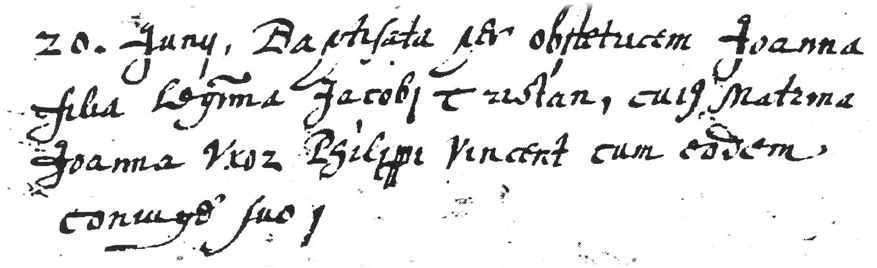 20. Junij, Baptisata per obstetricem Joanna
filia Legīma Jacobj Tristan, cuiꝰ Matrina
Joanna Vxor Philippi Vincent cum eodem
coniuge suo